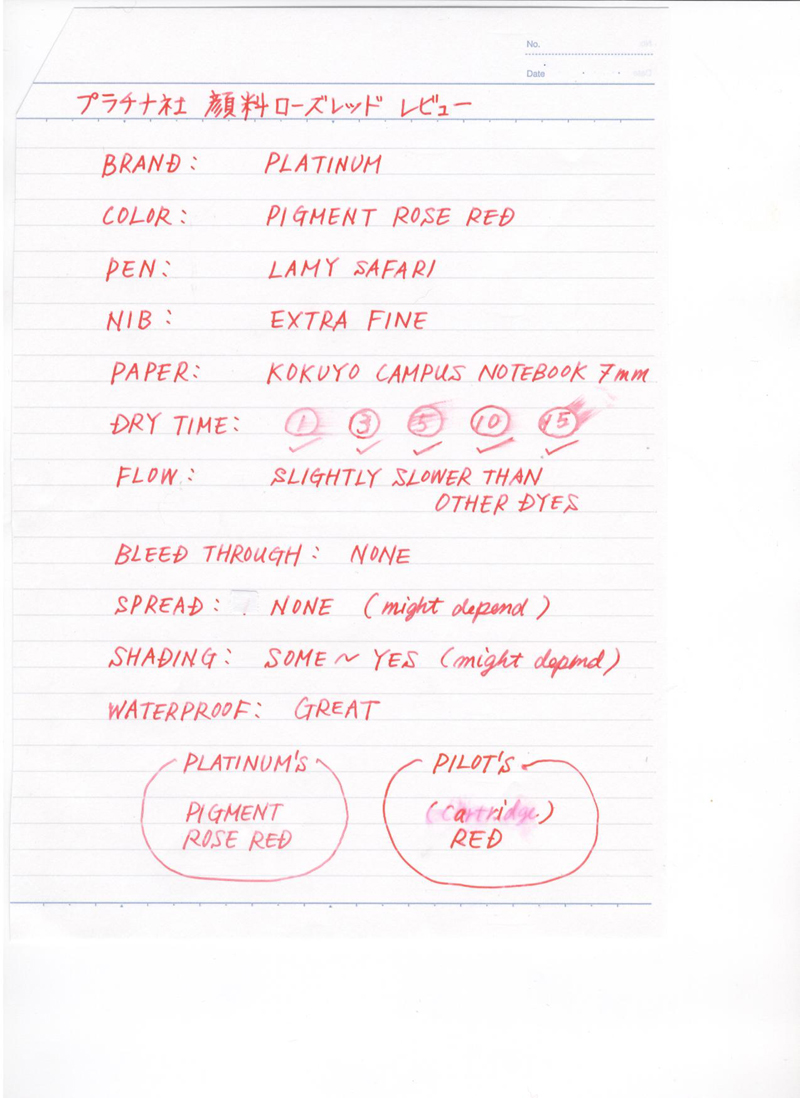 No.
Date
プラチナ社 顔料ローズレッド レビュー
BRAND: PLATINUM
COLOR: PIGMENT ROSE RED
PEN: LAMY SAFARI
NIB: EXTRA FINE
PAPER: KOKUYO CAMPUS NOTEBOOK 7mm
DRY TIME: 1 3 5 10 15
FLOW: SLIGHTLY SLOWER THAN
OTHER DYES
BLEED THROUGH: NONE
SPREAD: NONE (might depend)
SHADING: SOME~YES (might depend)
WATERPROOF: GREAT
PLATINUM'S
PIGMENT
ROSE RED
PILOT'S
(cartridge)
RED